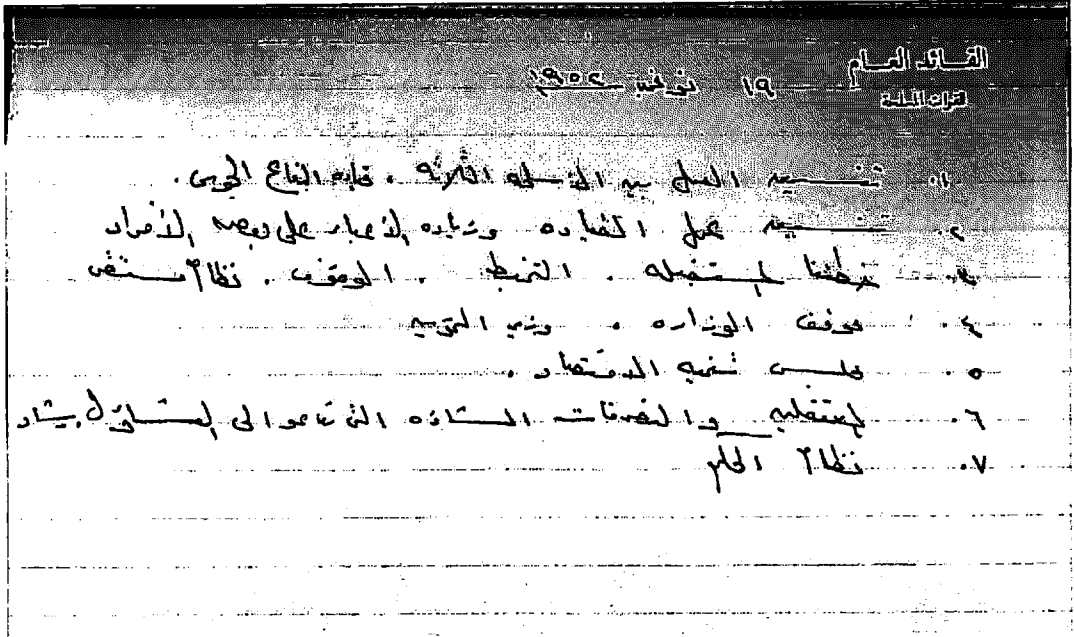 القائد العام
القوات المسلحة
١٩ نوفمبر ١٩٥٢
١. تنسيق العمل بين الأسلحة الثلاثة . خاصه الدفاع الجوى .
٢. تنسيق عمل القياده وزياده الأعباء على بعض الأفراد
٣. خطتنا المستقبله . التخطيط . الموقف . نظام مستقر
٤. موقف الوزاره . وزير التموين
٥. مجلس تنميه الاقتصاد .
٦. المعتقلين والتصرفات الشاذه التى تدعو الى التساؤل
٧. نظام الحكم